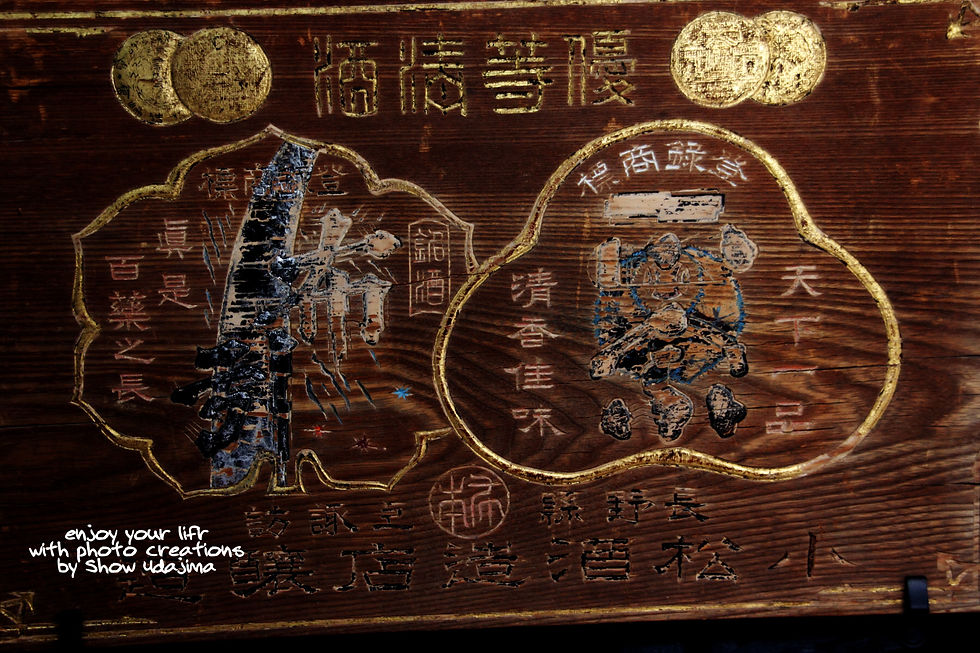 優等清酒
登錄商標
天下一品
清香佳味
登錄商標
銘酒
眞是
百藥之長
長野縣
上諏訪
小松酒造店釀造
enjoy your lifr
with photo creations
by Show Udajima